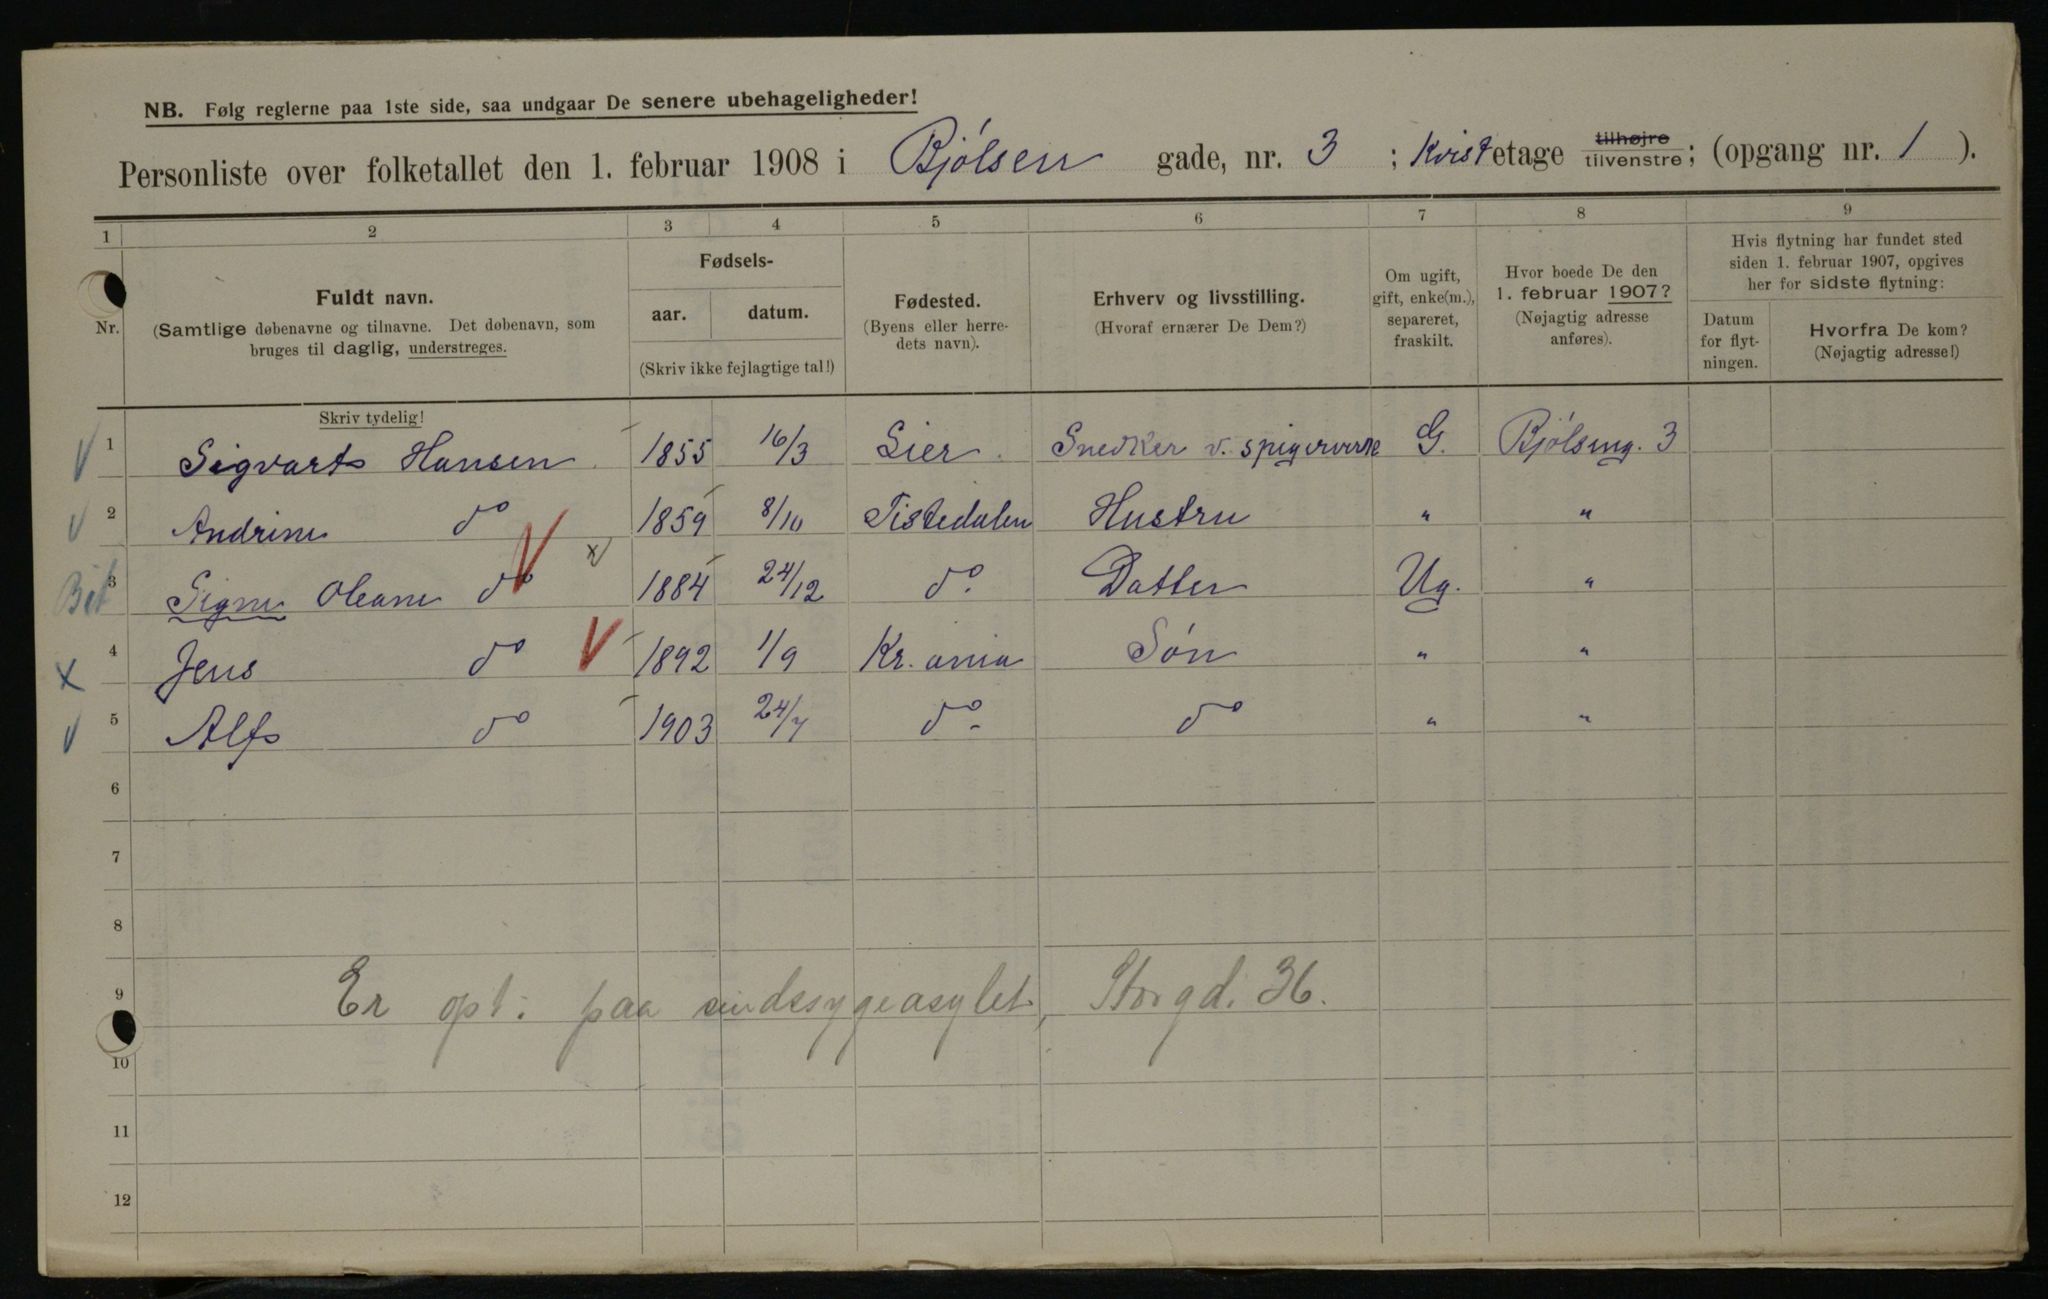 NB. Følg reglerne paa 1ste side, saa undgaar De senere ubehageligheder!
Personliste over folketallet den 1. februar 1908 i Bjólsen gade, nr. 3 ; Kvist etage tilhøjre tilvenstre; (opgang nr. 1 ).
1 2 3 4 5 6 7 8 9
Nr.
Fuldt navn.
(Samtlige døbenavne og tilnavne. Det døbenavn, som
bruges til daglig, understreges.
Skriv tydelig!
Fødsels-
aar. datum.
(Skriv ikke fejlagtige tal!)
Fødested.
(Byens eller herre-
dets navn).
Erhverv og livsstilling.
(Hvoraf ernærer De Dem?)
Om ugift,
gift, enke(m.),
separeret,
fraskilt.
Hvor boede De den
1. februar 1907?
(Nøjagtig adresse
anføres).
Hvis flytning har fundet sted
siden 1. februar 1907, opgives
her for sidste flytning:
Datum
for flyt-
ningen.
Hvorfra De kom?
(Nøjagtig adresse!)
V 1 Sigvart Hansen 1855 16/3 Lier Snedker v. spigerverk G. Bjólseng. 3
V 2 Andrine do 1859 8/10 Tistedalen Hustru " "
3 Signe Oleane do V x 1884 24/12 do. Datter Ug. "
x 4 Jens do V 1892 1/9 Kr.ania Són " "
V 5 Alf do 1903 24/7 do. do " "
6
7
8
9 Er opt. paa sindssygeasylet, Storgd. 36.
10
11
12